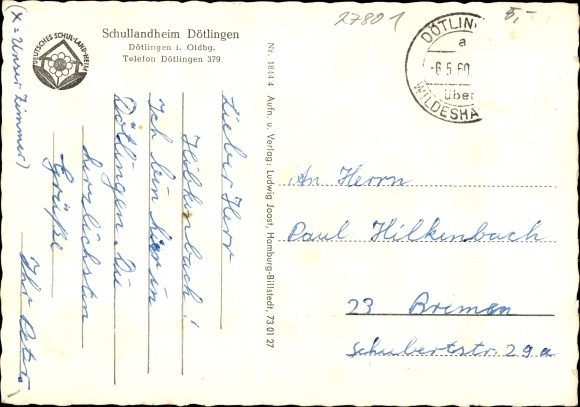 (x = Unser Zimmer)
DEUTSCHES SCHUL-LAND-HEIM
Schullandheim Dötlingen
Dötlingen i. Oldbg.
Telefon Dötlingen 379
Lieber Herr
Hilkinbach!
Ich bin hier in
Dötlingen. Die
herzlichsten
Grüße
Ihr Peter.
Nr. 1844 4 Aufn. u. Verlag: Ludwig Joost, Hamburg-Billstedt, 73 01 27
27801
5,-
DÖTLIN
a
-6.5.60
über
WILDESHA
An Herrn
Paul Hilkenbach
23 Bremen
Schubertstr. 29a